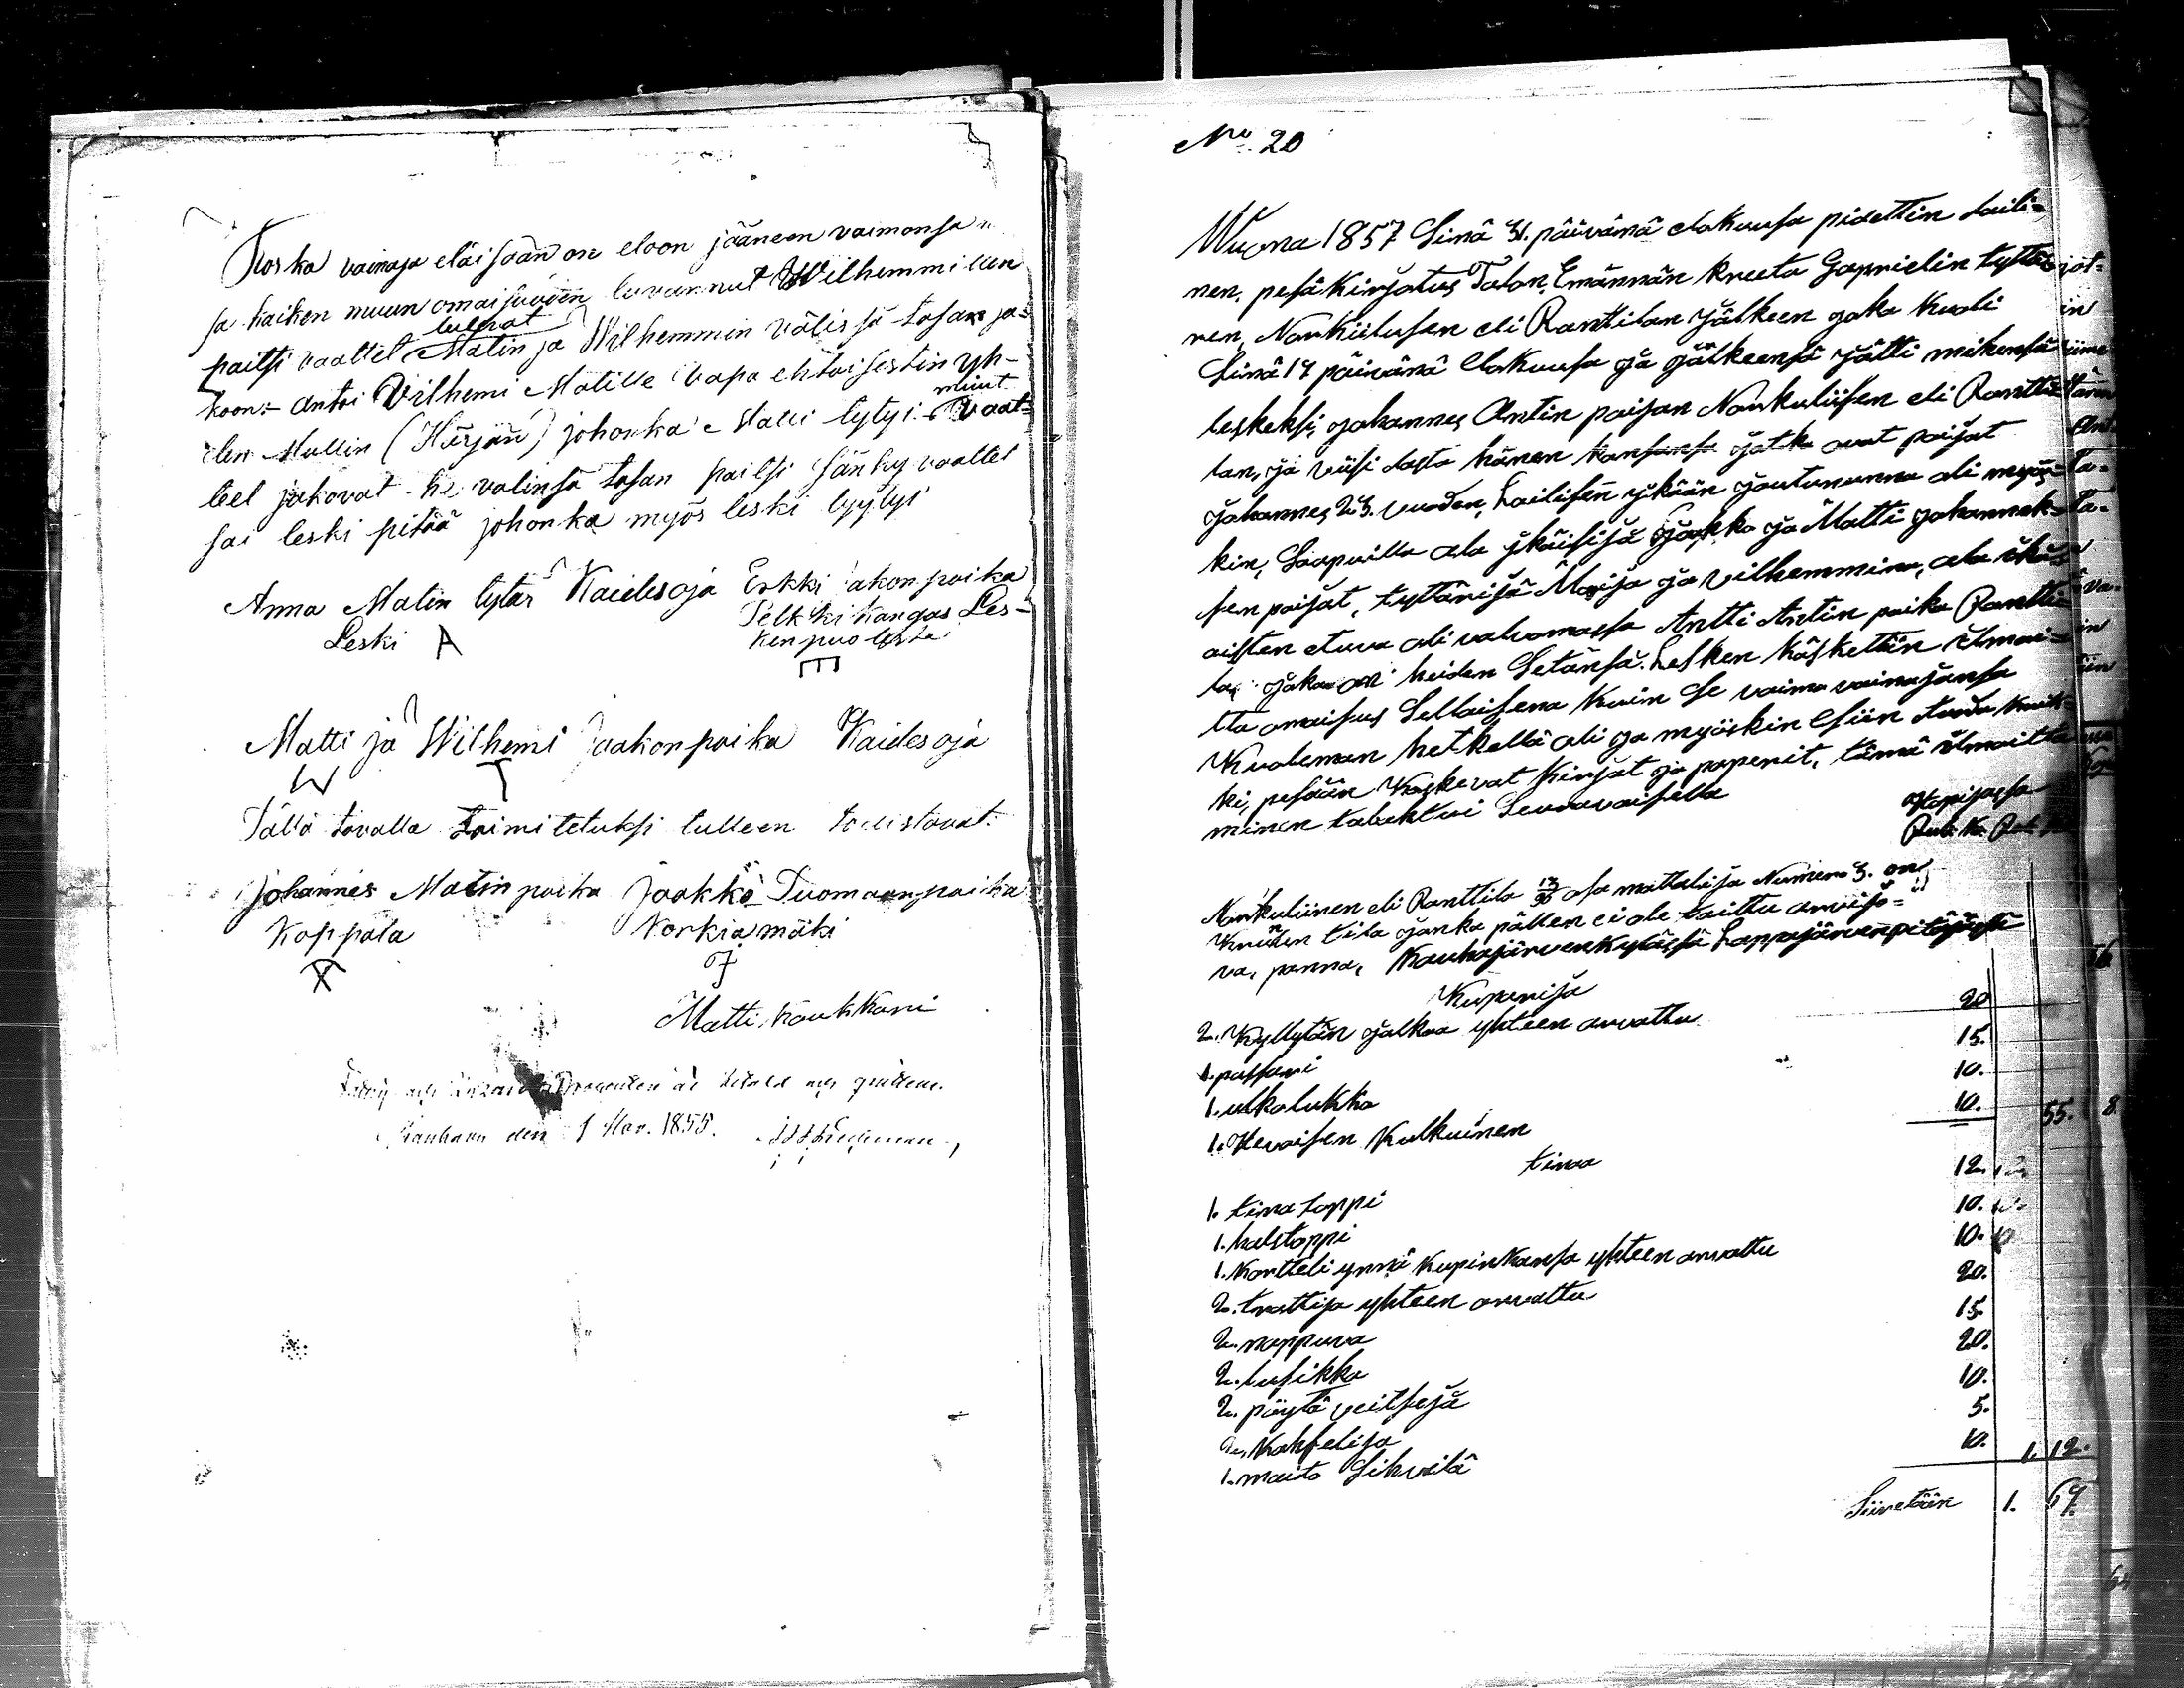 Koska vainaja eläisään on eloon jääneen vaimonsa
ja kaiken muun omaisuuden luvannut Wilhemmillen
paitsi vaattet tulevat Matin ja Wilhemmin välissä tasan ja-
koon:- antoi Vilhemi Matille vapa ehtoisestin yh-
den Mullin (Härjän) johonka Matti tytyi muut vaat-
teet jakovat he välinsä tasan paitsi sänky vaattet
sai leski pitää johonka myös leski tyytyi
Anna Matin tytär Kaidesoja Erkki Jakon poika
Leski A Pelkkikangas Les-
ken puolesta
E
Matti ja Wilhemi Jaakonpoika Kaidesoja
W T
Tällä tavalla toimitetuksi tulleen todistavat:
Johannes Matinpoika Jaakko Tuomaanpoika
Koppala Norkiamäki
Matti Kaukkari
Kauhava den 1 Nov. 1855.
No 20
Wuona 1857 Sinä 31. päivänä elokuusa pidettin Laili-
nen, pesäkirjotus Talon Emännän Kreeta Gaprielin tyttä-
ren, Naukulusen eli Ranttilan jälkeen joka Kuoli
Sinä 17 päivänä Elokuusa ja jälkeensä jätti miehensä
leskeksi, Johannes Antin poijan Naukuliisen eli Rantti-
lan, ja viisi lasta hänen kansansa jotka ovat poijat
Johannes 23. vuoden, Laillisen ikään joutununna oli myös-
kin, Saapuilla ala ikäisisä Jaakko ja Matti Johannek-
sen poijat, tyttäristä Maija ja Vilhemmina, ala ikä-
aisten etuva oli valvomassa Antti Antin poika Rantti-
la, joka on heiden Setänsä. Lesken käskettin ilmoi-
tta omaisus Sellaisena kuin Se vaimo vainajansa
Kuoleman hetkellä oli ja myöskin Esiin tuoda kaik-
ki, pesään koskevat kirjat ja paperit, tämä ilmoitta-
minen tabahtui Seuraavaisella
Hopijassa
Rub. Ko. Rub.
Naukuliinen eli Ranttila 13/96 osa mattalija Numero 3. on
Kruunun tila jonka pällen ei ole taittu arvijo-
va, panna, Kauhajärvenkylässä Lappajärvenpitäjässä
Kuparija
2. Kyllytän jalkaa yhteen arvattu 20
1. pattari 15.
1. ulkolukko 10.
1. Hevaisen Kulkuinen 10. 55.
tinaa
1. tina toppi 12.
1. halstoppi 10.
1. Kortteli ynnä kupinkansa yhteen arvattu 10.
2. trattija yhteen arvattu 20.
2. nappuva 15.
2. lusikka 20.
2. pöytä veitsejä 10.
2. Kahfelija 5.
1. maito Sihvilä 10. 1. 12.
Siiretään 1. 67.